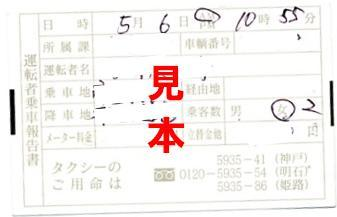 運転者乗車報告書
日時 5月6日 10時55分
所属課 車輌番号
運転者名
乗車地 経由地
降車地 乗客数 男 女 2
メーター料金 立替金他 円
見本
タクシーの
ご用命は
5935-41 (神戸)
0120-5935-54 (明石)
5935-86 (姫路)